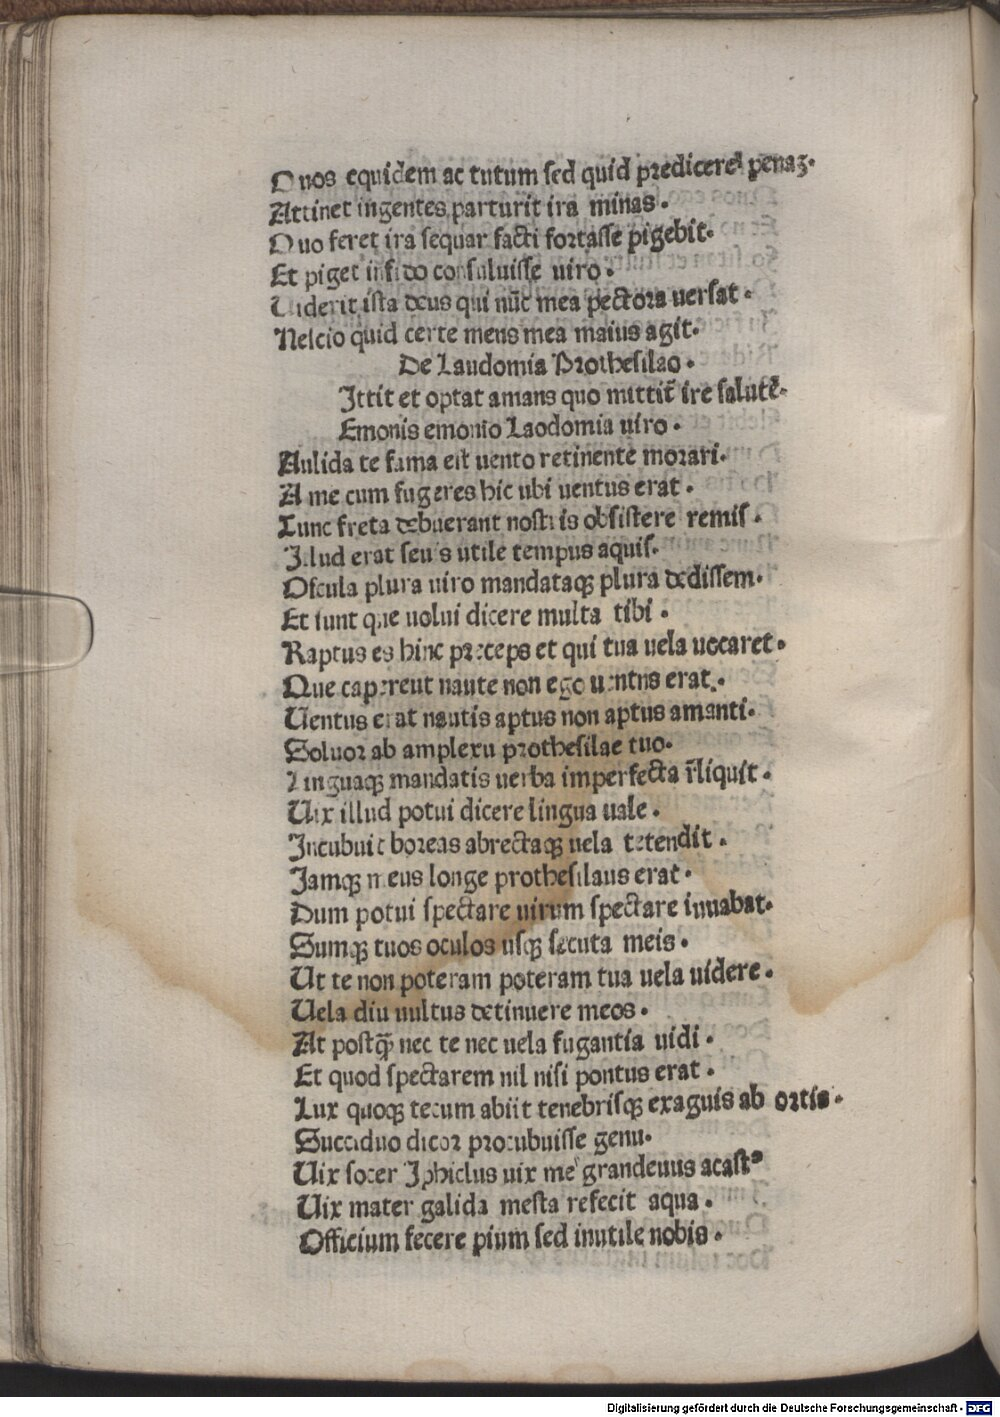 Quos equidem ac tutum sed quid predicere penaꝫ.
Attinet ingentes parturit ira minas.
Quo feret ira sequar facti fortasse pigebit.
Et piget infido consuluisse uiro.
Uiderit ista deus qui nūc mea pectora uersat.
Nescio quid certe mens mea maius agit.
De Laudomia Prothesilao.
Ittit et optat amans quo mittit̄ ire salutē.
Emonis emonio Laodomia uiro.
Aulida te fama est uento retinente morari.
A me cum fugeres hic ubi uentus erat.
Tunc freta debuerant nostris obsistere remis.
Illud erat seuis utile tempus aquis.
Oscula plura uiro mandataqꝫ plura dedissem.
Et sunt que uolui dicere multa tibi.
Raptus es hinc preceps et qui tua uela uocaret.
Que caperent naute non ego uentus erat.
Uentus erat nautis aptus non aptus amanti.
Soluor ab amplexu prothesilae tuo.
Linguaqꝫ mandatis uerba imperfecta r̄liquit.
Uix illud potui dicere lingua uale.
Incubuit boreas abrectaqꝫ uela tetendit.
Iamqꝫ meus longe prothesilaus erat.
Dum potui spectare uirum spectare iuuabat.
Sumqꝫ tuos oculos usqꝫ secuta meis.
Ut te non poteram poteram tua uela uidere.
Uela diu uultus detinuere meos.
At postqꝫ̄ nec te nec uela fugantia uidi.
Et quod spectarem nil nisi pontus erat.
Lux quoqꝫ tecum abiit tenebrisqꝫ exaguis ab ortis.
Succiduo dicor procubuisse genu.
Uix socer Iphiclus uix me grandeuus acastꝰ
Uix mater galida mesta refecit aqua.
Officium fecere pium sed inutile nobis.
Digitalisierung gefördert durch die Deutsche Forschungsgemeinschaft - DFG